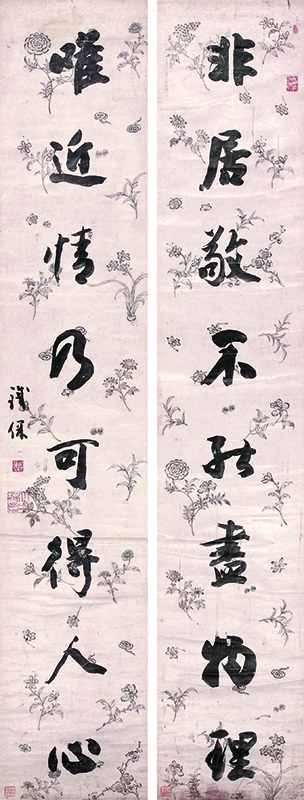 非居敬不能盡物理
唯近情乃可得人心
鐵保